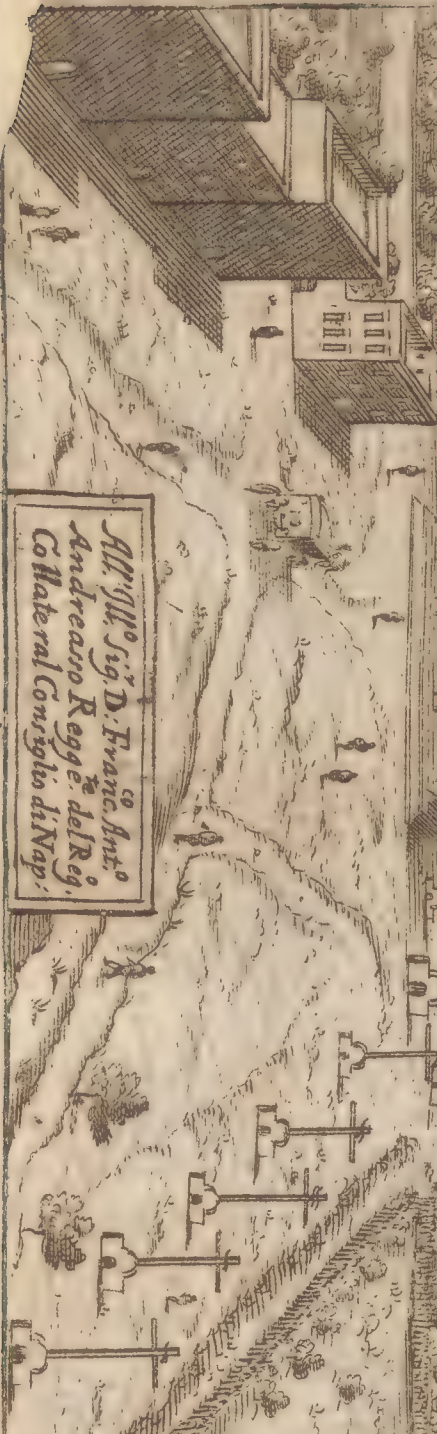 All'Ill.º Sig.r D: Franc.co Ant.º
Andreasso Regg.te del Reg.º
Collateral Consiglio di Nap: